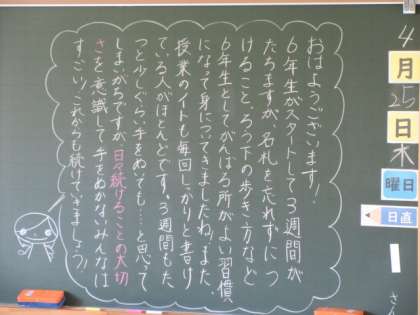 おはようございます！
6年生がスタートして3週間が
たちますが、名札を忘れずにつ
けること、ろう下の歩き方など
6年生としてがんばる所がよい習慣
になって身についてきましたね！また
授業のノートも毎回しっかりと書け
ている人がほとんどです。3週間もた
つと少しぐらい手をぬいても…と思って
しまいがちですが、日々続けることの大切
さを意識して手をぬかないみんなは
すごい！これからも続けていきましょう！
4
月
25
日
木
曜日
日直
1
さん